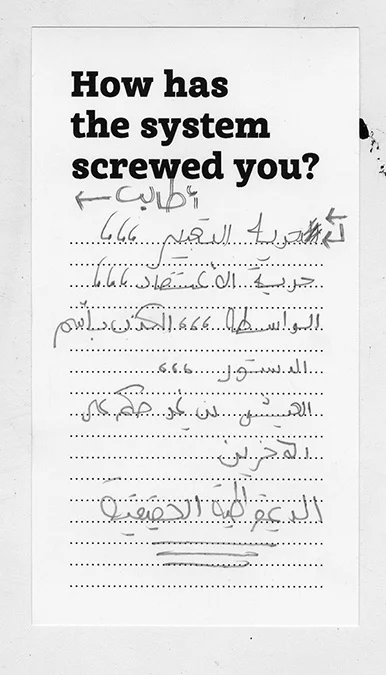 How has
the system
screwed you?
أطالب ←
حرية التعبير ،،،
حرية الأعتقاد ،،،
الواسطة ،،، الكذب بأسم
الدستور ،،،
العيش من غير حكم على
الآخرين
الديمقراطية الحقيقية